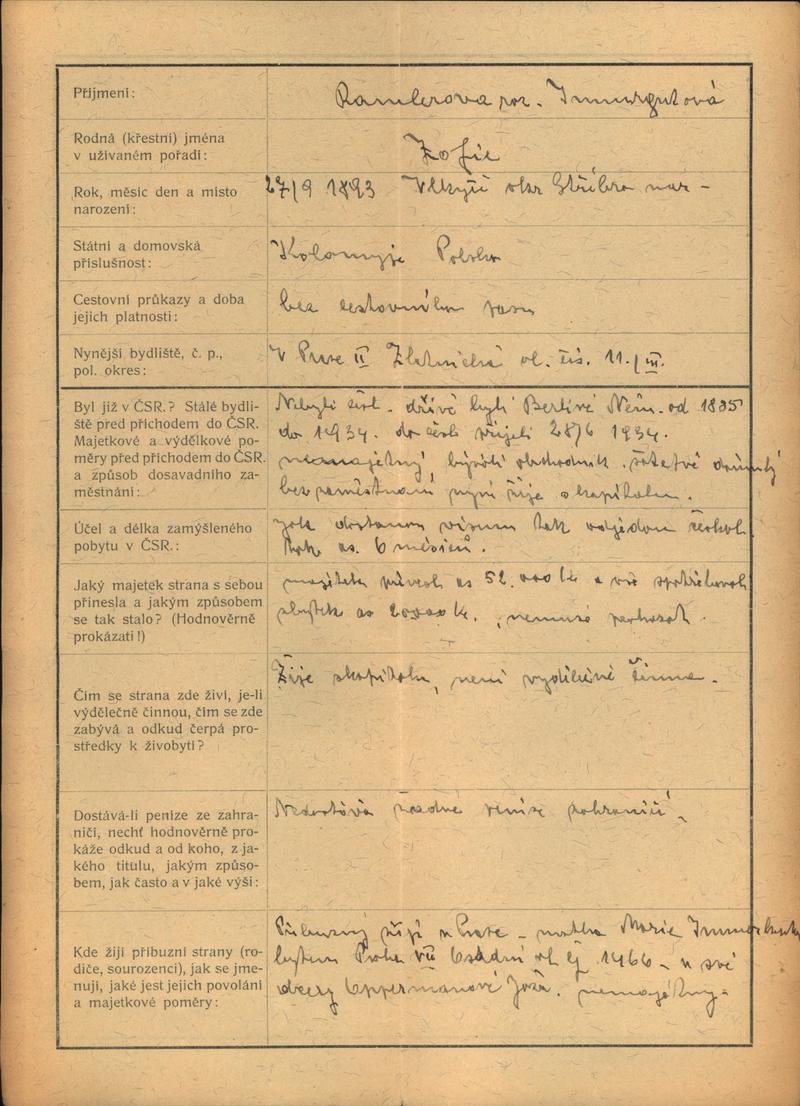 Příjmení:
Ramlerova roz. Immergutová
Rodná (křestní) jména
v užívaném pořadí:
Zofie
Rok, měsíc den a místo
narození:
27/9 1893 okr Stříbro nar -
Státní a domovská
příslušnost:
Kolomyje Polsko
Cestovní průkazy a doba
jejich platnosti:
bez cestovního pasu
Nynější bydliště, č. p.,
pol. okres:
V Praze II Zlatnická ul. čís. 11./III.
Byl již v ČSR.? Stálé bydli-
ště před příchodem do ČSR.
Majetkové a výdělkové po-
měry před příchodem do ČSR.
a způsob dosavadního za-
městnání:
Nebyli dříve byli Berlíně Něm. od
do 1934. do přijeli 28/6 1934.
nemajetný, bývalí obchodník.
bez zaměstnání nyní žije s kapitálu.
Účel a délka zamýšleného
pobytu v ČSR.:
jak dostanou visum tak odjedou
as. 6 měsíců.
Jaký majetek strana s sebou
přinesla a jakým způsobem
se tak stalo? (Hodnověrně
prokázati!)
majetek as 52.000 Kč a
zbytek as 20000 Kč. nemusé
Čím se strana zde živí, je-li
výdělečně činnou, čím se zde
zabývá a odkud čerpá pro-
středky k živobytí?
Žije skapitalu, není vydělečné činna.
Dostává-li peníze ze zahra-
ničí, nechť hodnověrně pro-
káže odkud a od koho, z ja-
kého titulu, jakým způso-
bem, jak často a v jaké výši:
Nedostává žadné peníze
Kde žijí příbuzní strany (ro-
diče, sourozenci), jak se jme-
nují, jaké jest jejich povolání
a majetkové poměry:
Příbuzný žijí v Praze - matka Marie
bytem Praha VII ul čj 1466 - u své
dcery nemajetný-